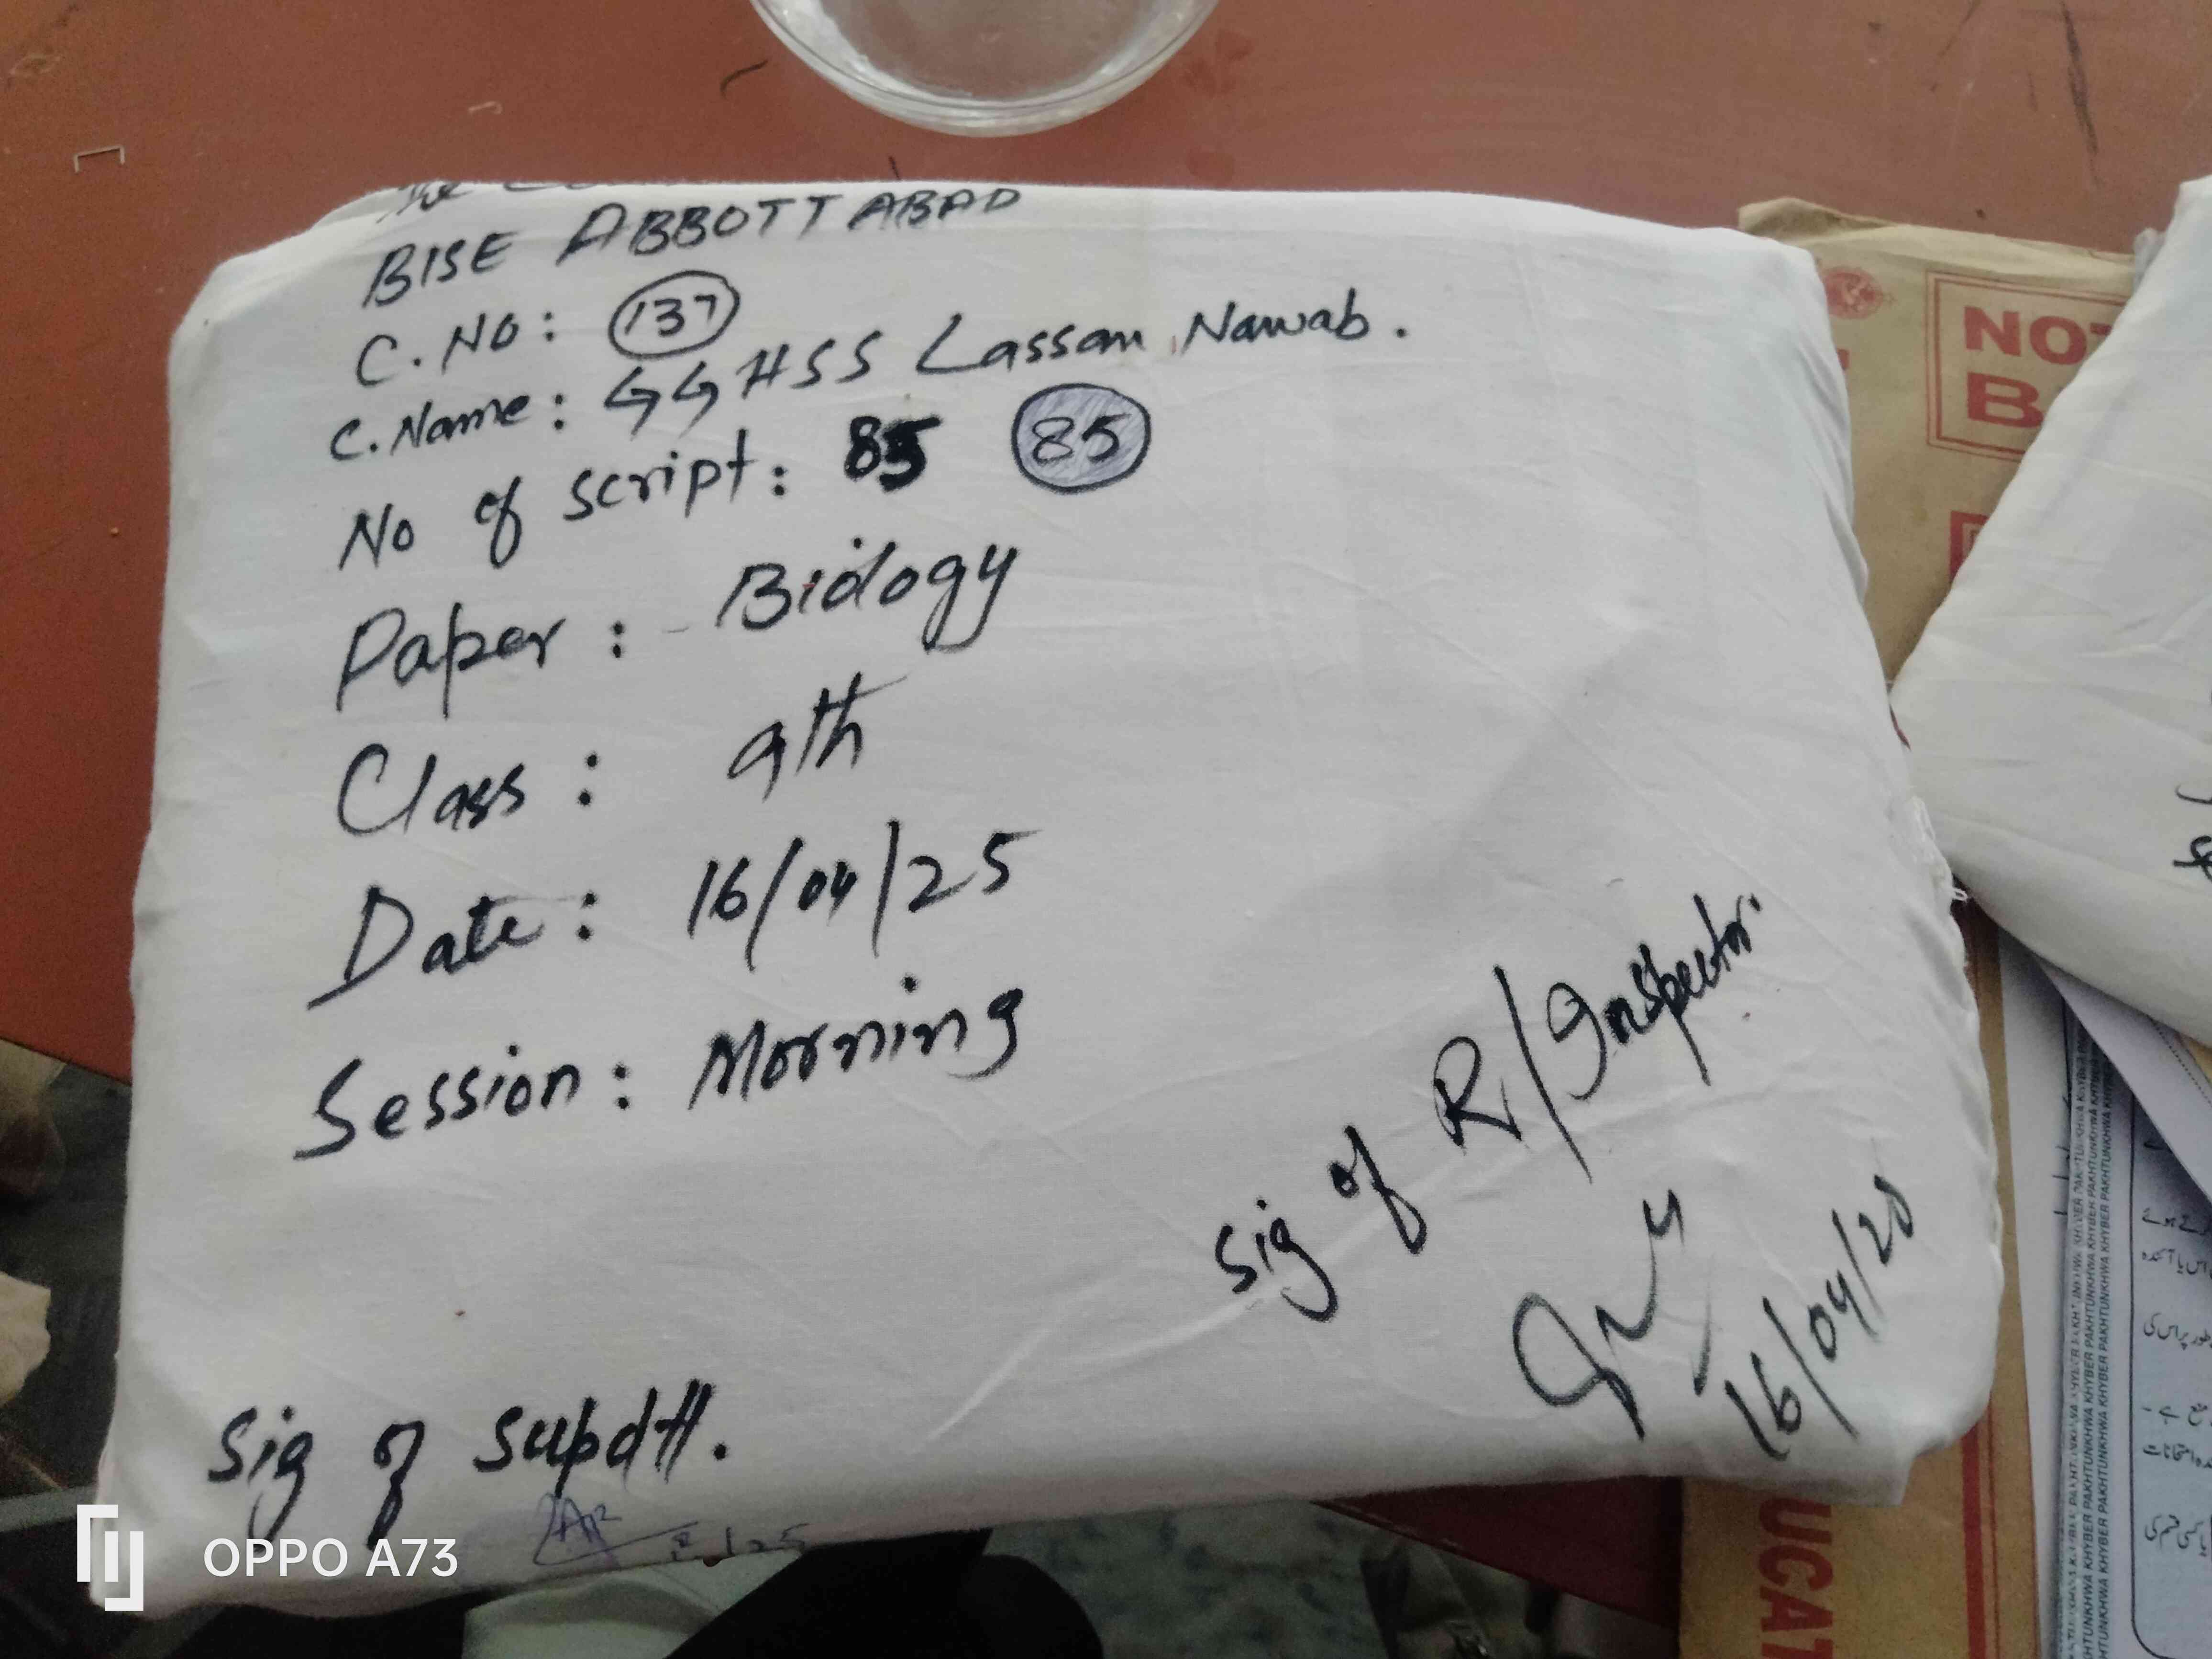 The
BISE ABBOTTABAD
C.NO: 137
C.Name: GGHSS Lassan Nawab.
No of script: 85 85
Paper: - Biology
Class: 9th
Date: 16/04/25
Session: Morning
Sig of R/Inspector.
16/04/25
Sig of Supdtt.
OPPO A73
NOT
B
UCAT
KHYBER PAKHTUNKHWA KHYBER PAKHTUNKHWA KHYBER PAKHTUNKHWA